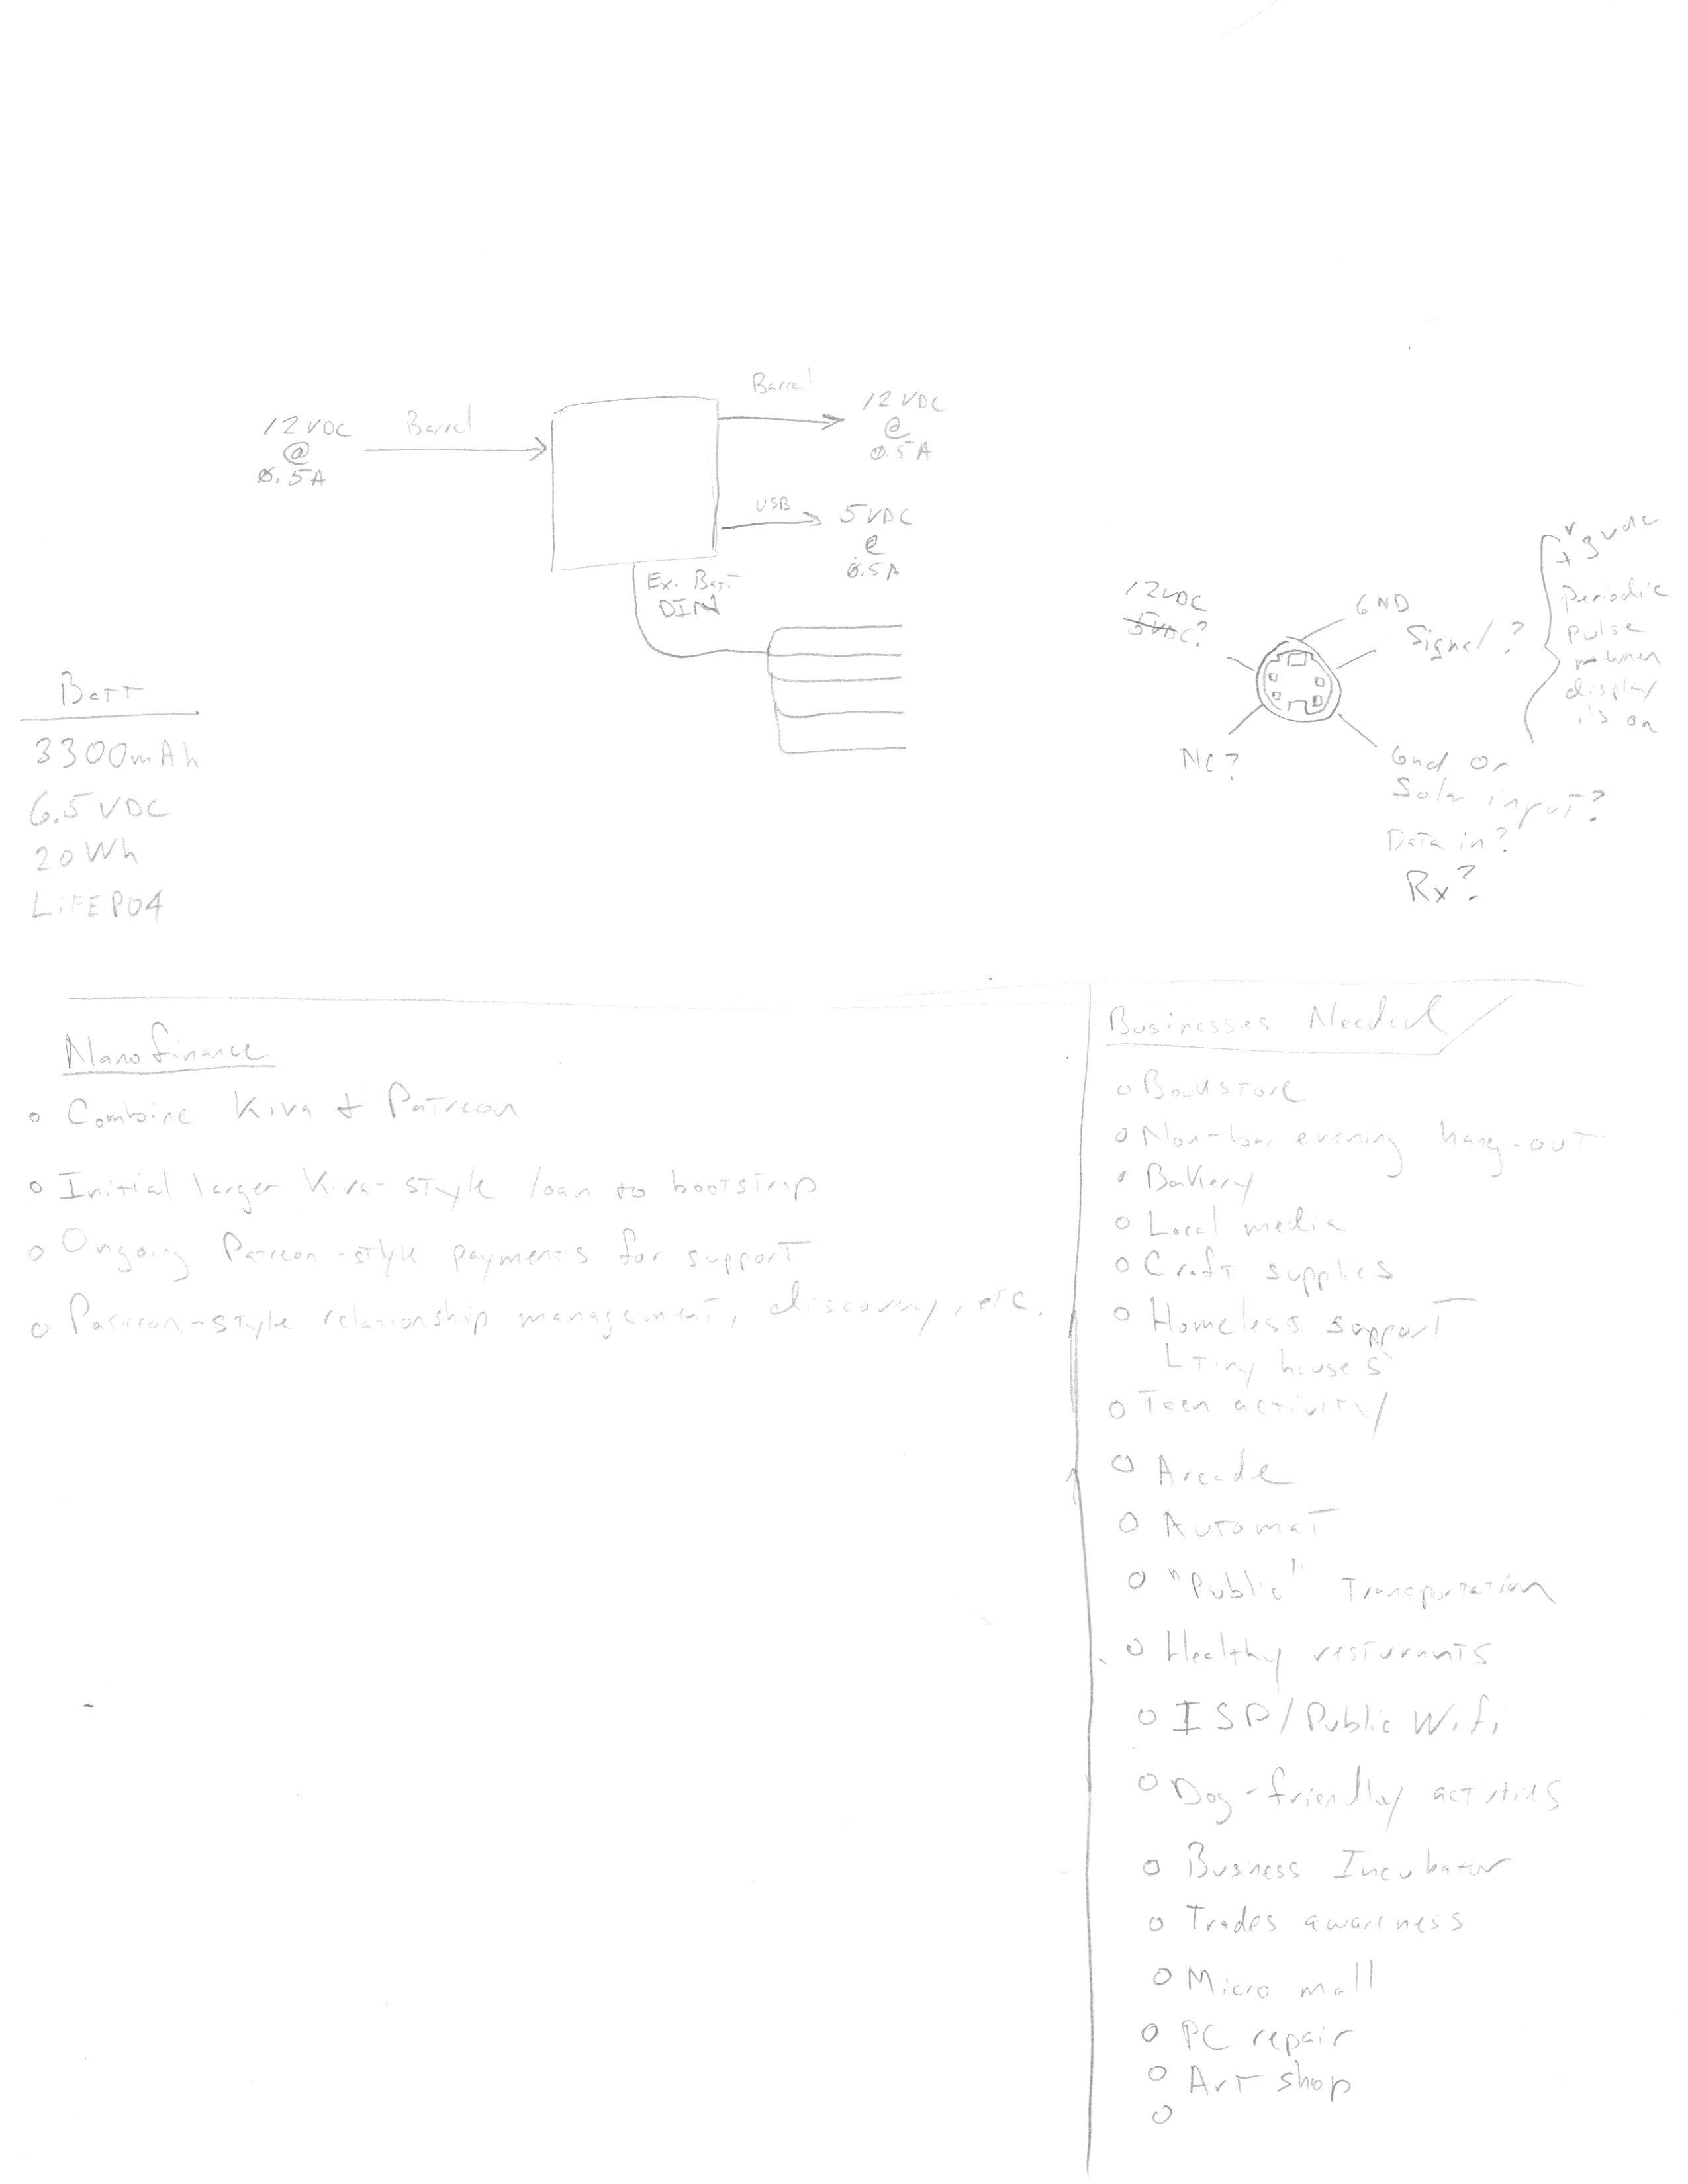 Barrel
12 VDC
@
0.5A
Barrel
12 VDC
@
0.5A
USB
5VDC
@
0.5A
Ex. Batt
DIN
Batt
3300mAh
6.5VDC
20Wh
LiFEPO4
12VDC
5VDC?
GND
Signal?
NC?
Gnd or
Solar input?
Data in?
Rx?
+3vdc
Periodic
pulse
when
display
is on
Nanofinance
o Combine Kiva + Patreon
o Initial larger Kiva-style loan to bootstrap
o Ongoing Patreon-style payments for support
o Patreon-style relationship management, discovery, etc.
Businesses Needed
o Bookstore
o Non-bar evening hang-out
o Bakery
o Local media
o Craft supplies
o Homeless support
L Tiny houses
o Teen activity
o Arcade
o Automat
o "Public" Transportation
o Healthy resturants
o ISP/Public Wifi
o Dog-friendly activities
o Business Incubator
o Trades awareness
o Micro mall
o PC repair
o Art shop
o